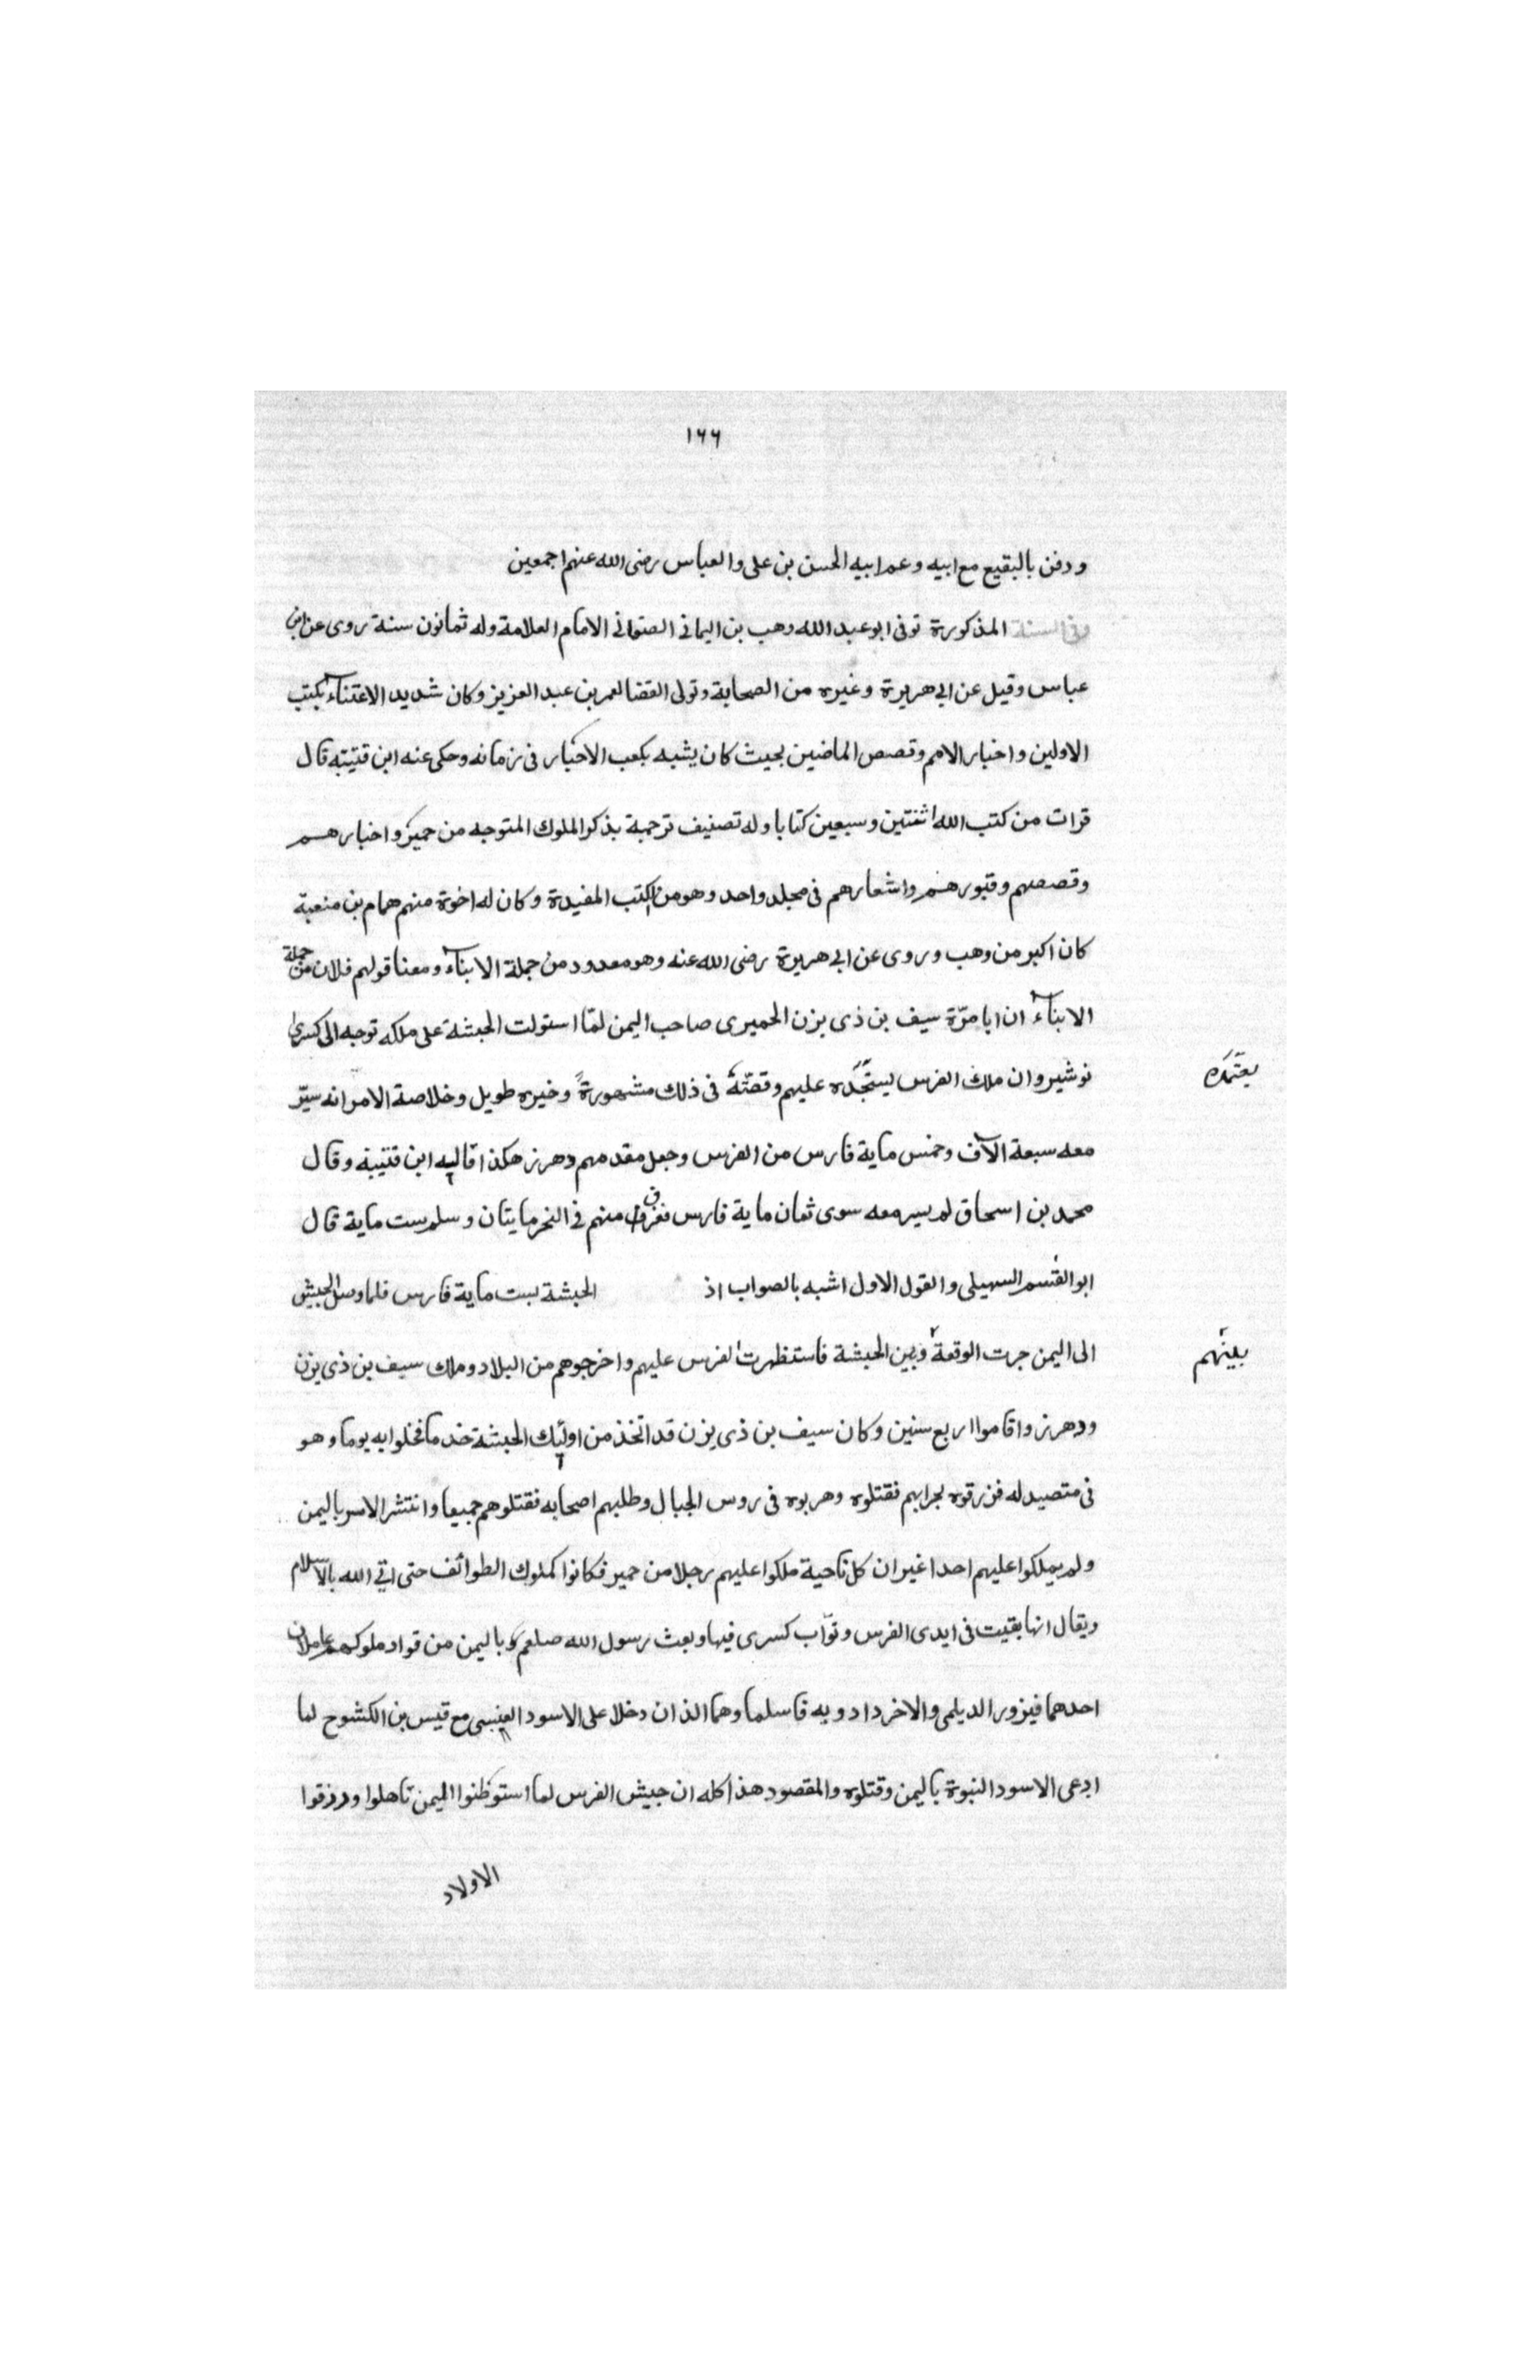 ١٦٦
ودفن بالبقيع مع ابيه وعم ابيه الحسن بن على والعباس رضى الله عنهم اجمعين
وفى السنة المذكورة توفى ابو عبد الله وهب بن اليمانى الصنعانى الامام العلامة وله ثمانون سنة روى عن ابن
عباس وقيل عن ابى هريرة وغيره من الصحابة وتولى القضا لعمر بن عبد العزيز وكان شديد الاعتناء بكتب
الاولين واخبار الامم وقصص الماضين بحيث كان يشبه بكعب الاحبار فى زمانه وحكى عنه ابن قتيبة قال
قرات من كتب الله اثنتين وسبعين كتابا وله تصنيف ترجمة بذكر الملوك المتوجه من حمير واخبارهم
وقصصهم وقبورهم واشعارهم فى مجلد واحد وهو من الكتب المفيدة وكان له اخوة منهم همام بن منعبة
كان اكبر من وهب وروى عن ابى هريرة رضى الله عنه وهو معدود من جملة الابناء ومعنا قولهم فلان من جملة
الابناء ان ابا مرّة سيف بن ذى يزن الحميرى صاحب اليمن لمّا استولت الحبشة على ملكه توجه الى كسرى
نوشيروان ملك الفرس يستنجده عليهم وقصّته فى ذلك مشهورة وخبره طويل وخلاصة الامر انه سيّر
معه سبعة الآف وخمس ماية فارس من الفرس وجعل مقدمهم دهرز هكذا قاليه ابن قتيبة وقال
محمد بن اسحاق لم يسير معه سوى ثمان ماية فارس فغرق منهم فى البحر مايتان وسلم ست ماية قال
ابو القسم السهيلى والقول الاول اشبه بالصواب اذ الحبشة بست ماية فارس فلما وصل الجيش
الى اليمن جرت الوقعة وبين الحبشة فاستظهرت الفرس عليهم واخرجوهم من البلاد وملك سيف بن ذى يزن
بينهم
ودهرز واقاموا اربع سنين وكان سيف بن ذى يزن قد اتخذ من اولئك الحبشة خدما فخلوا به يوما وهو
فى متصيد له فزرقوه بحرابهم فقتلوه وهربوه فى روس الجبال وطلبهم اصحابه فقتلوهم جميعا وانتشر الامر باليمن
ولم يملكوا عليهم احدا غير ان كل ناحية ملكوا عليهم رجلا من حمير فكانوا كملوك الطوائف حتى اتى الله بالاسلام
ويقال انها بقيت فى ايدى الفرس ونوّاب كسرى فيها وبعث رسول الله صلعم وباليمن من قواد ملوكهم عاملان
احدهما فيزور الديلمى والاخر دادويه فاسلما وهما الذان دخلا على الاسود العنسى مع قيس بن الكشوح لما
ادعى الاسود النبوة باليمن وقتلوه والمقصود هذا كله ان جيش الفرس لما استوطنوا اليمن تاهلوا ورزقوا
الاولاد